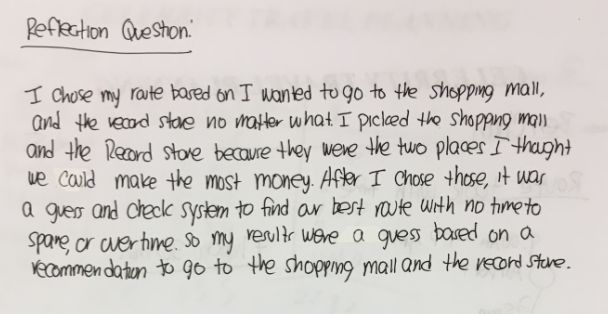 Reflection Question:
I chose my route based on I wanted to go to the shopping mall,
and the record store no matter what. I picked the shopping mall
and the Record store because they were the two places I thought
we could make the most money. After I chose those, it was
a guess and check system to find our best route with no time to
spare, or overtime. So my results were a guess based on a
recommendation to go to the shopping mall and the record store.